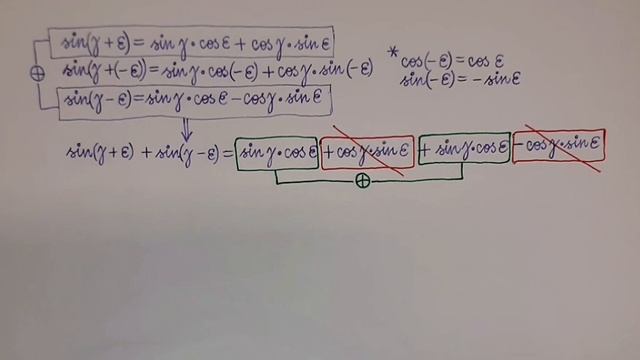 sin(γ + ε) = sin γ · cos ε + cos γ · sin ε
sin(γ + (-ε)) = sin γ · cos(-ε) + cos γ · sin(-ε)
sin(γ - ε) = sin γ · cos ε - cos γ · sin ε
* cos(-ε) = cos ε
sin(-ε) = - sin ε
⊕
⇓
sin(γ + ε) + sin(γ - ε) = sin γ · cos ε + cos γ · sin ε + sin γ · cos ε - cos γ · sin ε
⊕